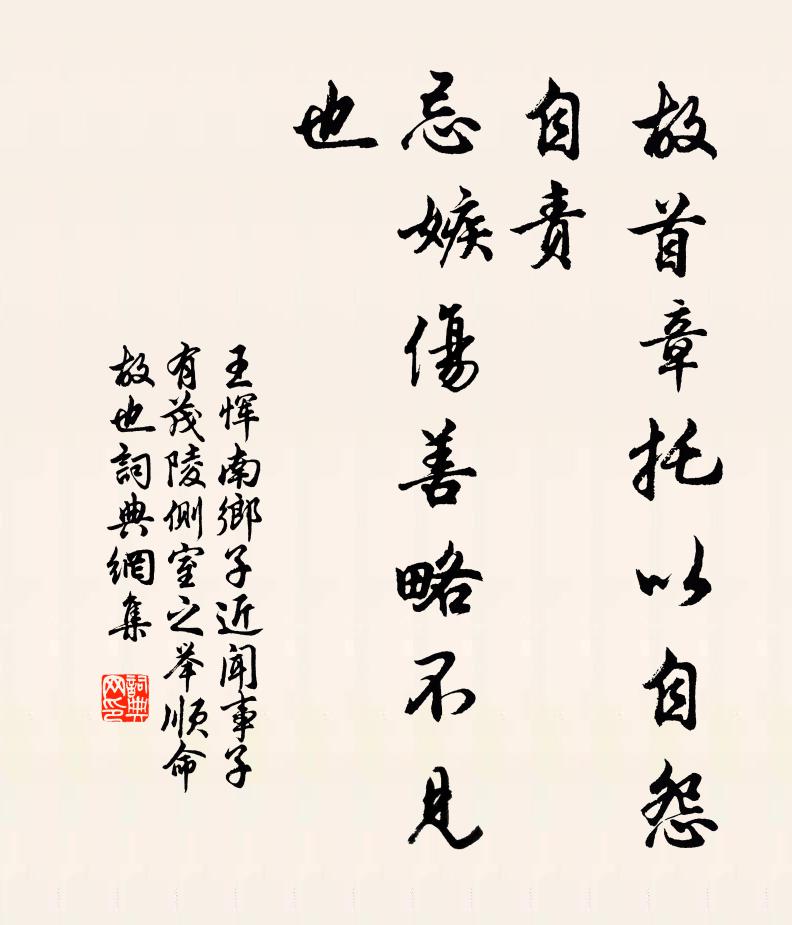 故首章托以自怨
自责
忌嫉傷善略不見
也
王恽南鄉子近闻事子
有茂陵側室之举顺命
故也詞典網集
詞典
网印